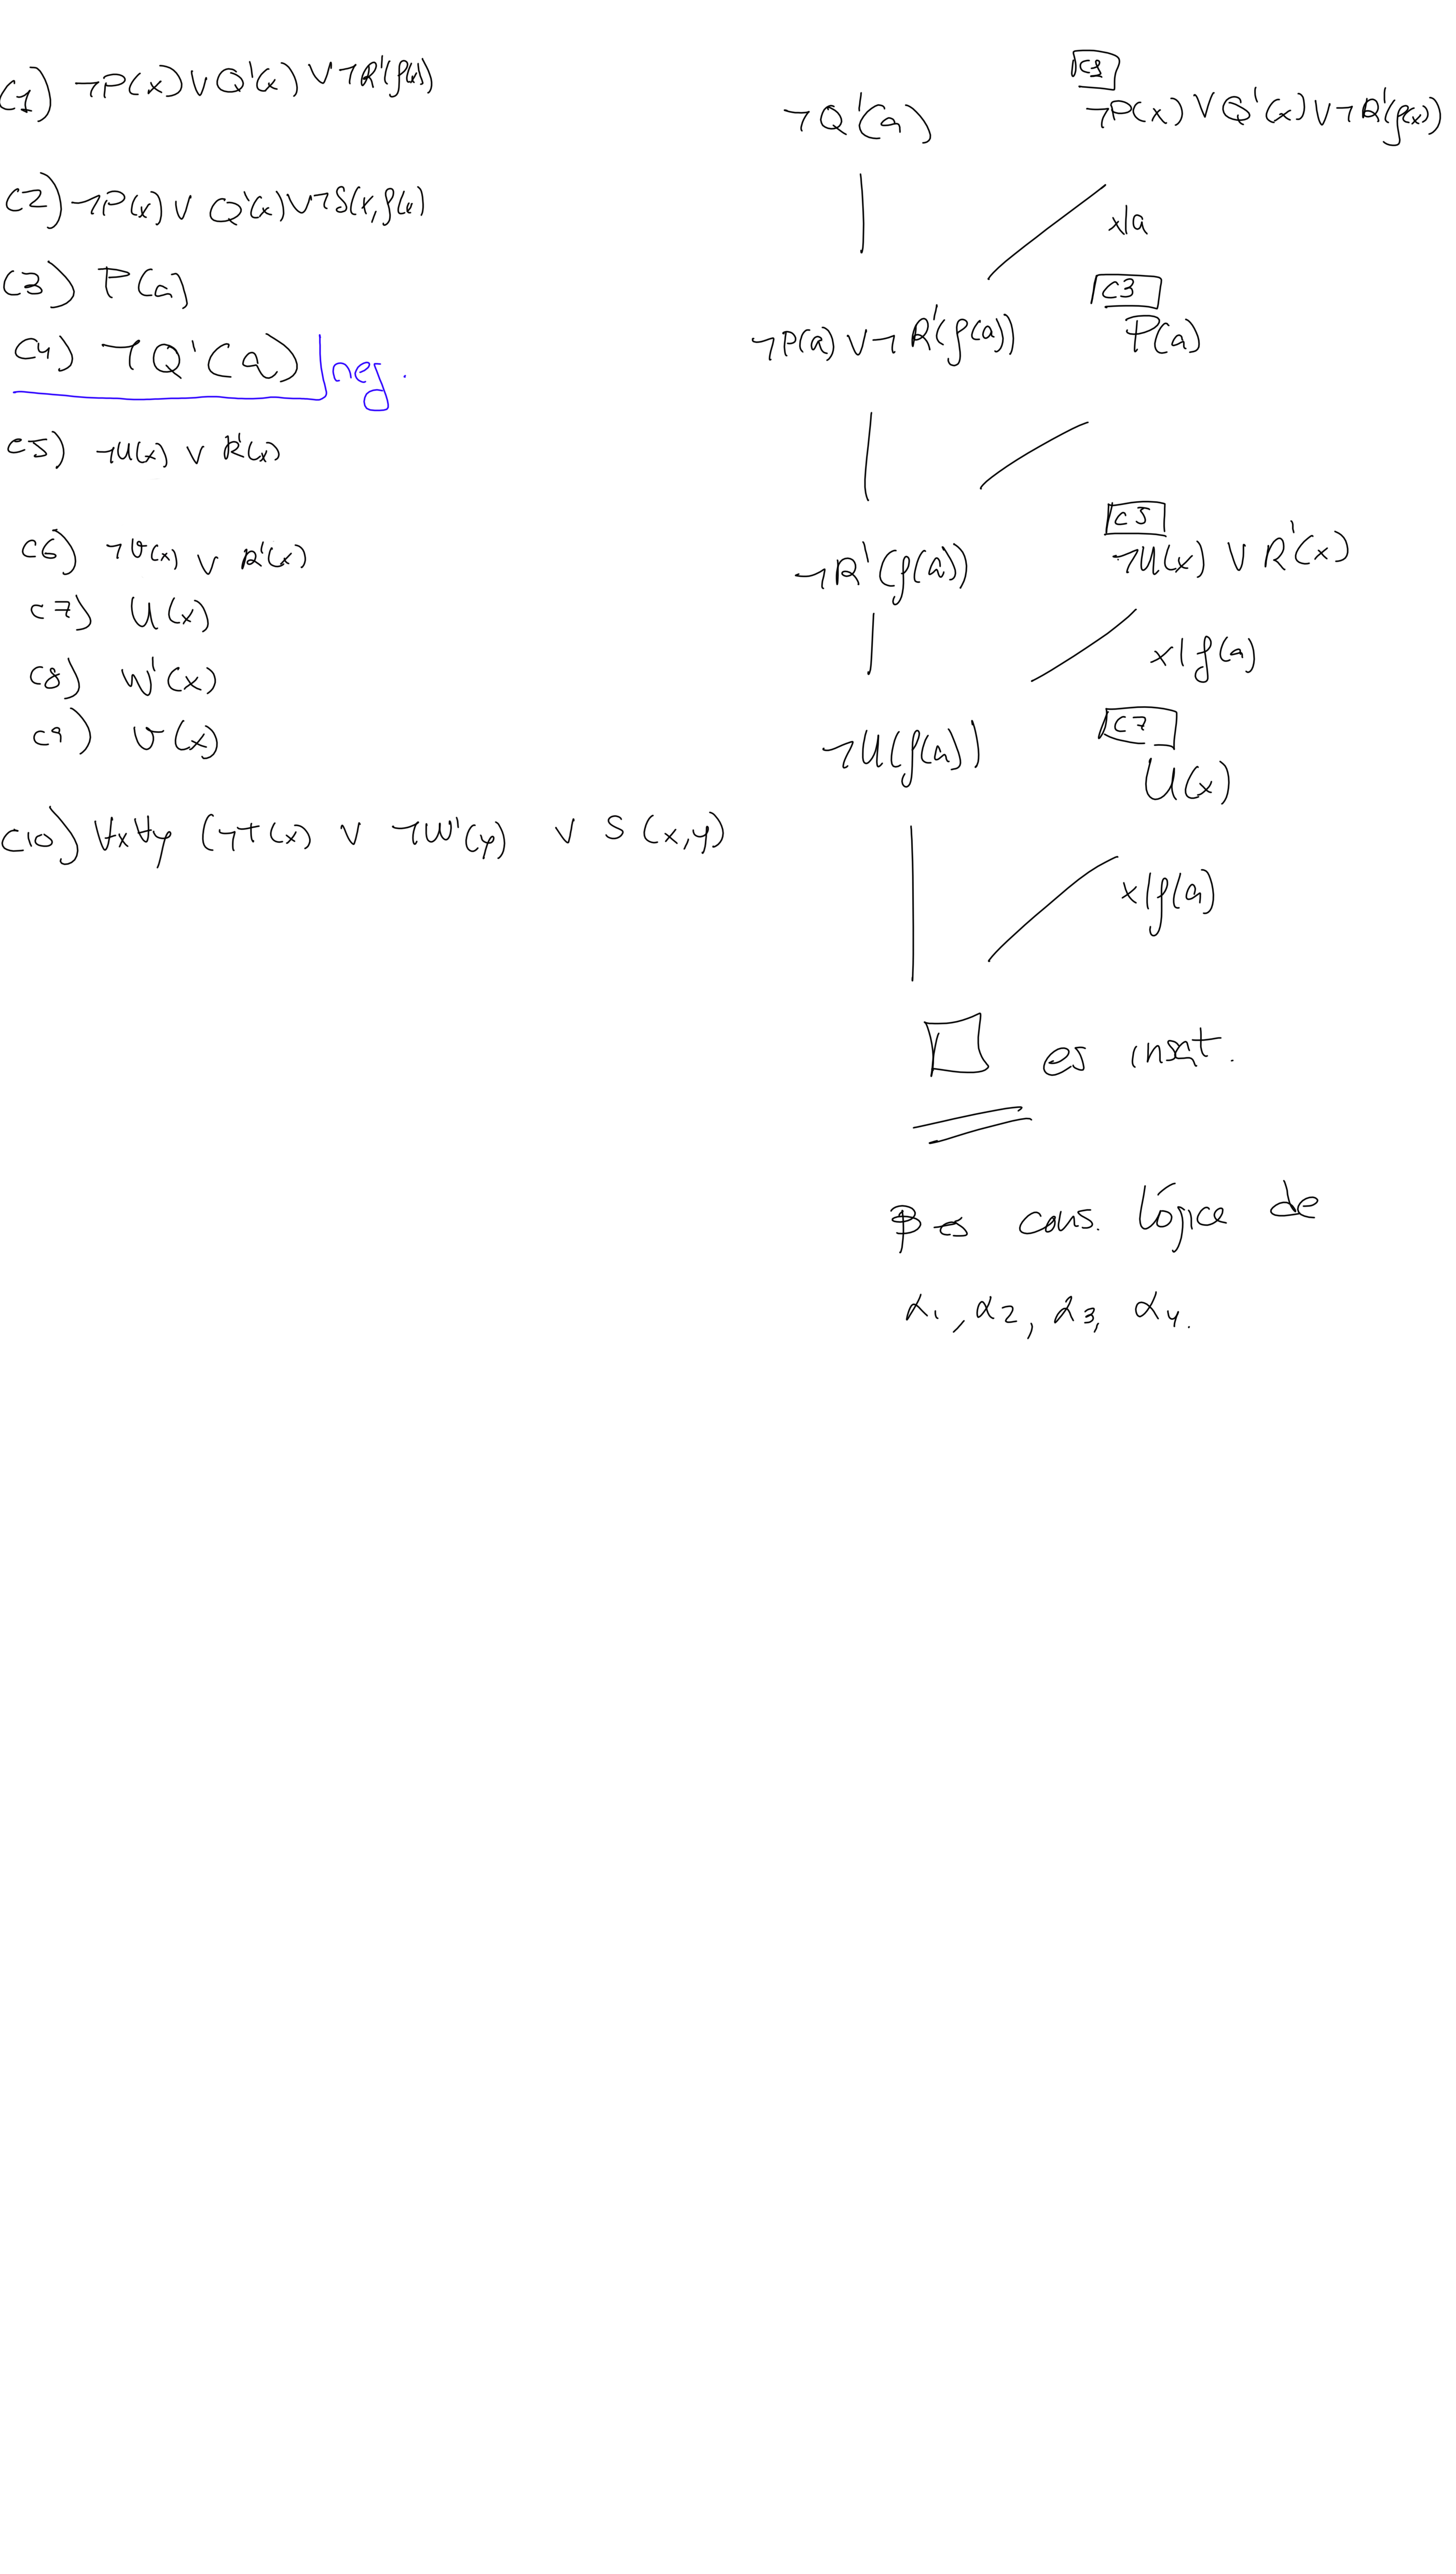 C1) ¬P(x) ∨ Q'(x) ∨ ¬R'(f(x))
C2) ¬P(x) ∨ Q'(x) ∨ ¬S(x,f(x))
C3) P(a)
C4) ¬Q'(a) neg.
C5) ¬U(x) ∨ R'(x)
C6) ¬V(x) ∨ R'(x)
C7) U(x)
C8) W'(x)
C9) V(x)
C10) ∀x∀y (¬T(x) ∨ ¬W'(y) ∨ S(x,y)
C1
¬Q'(a) ¬P(x) ∨ Q'(x) ∨ ¬R'(f(x))
x|a
C3
¬P(a) ∨ ¬R'(f(a)) P(a)
C5
¬R'(f(a)) ¬U(x) ∨ R'(x)
x|f(a)
C7
¬U(f(a)) U(x)
x|f(a)
□ es insat.
β es cons. lógica de
α1, α2, α3, α4.